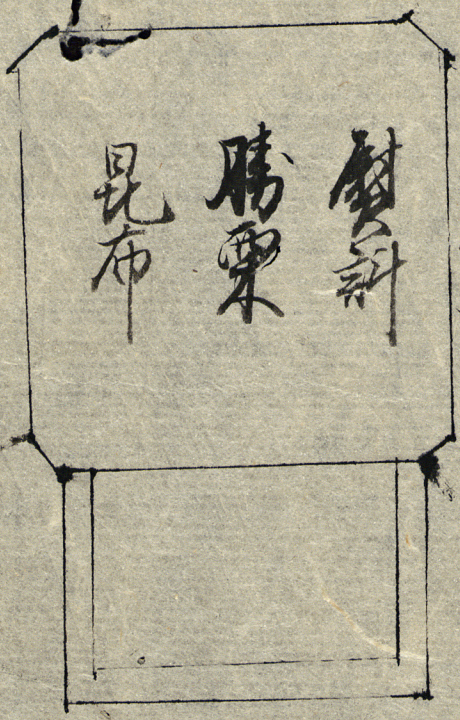 熨斗
勝栗
昆布